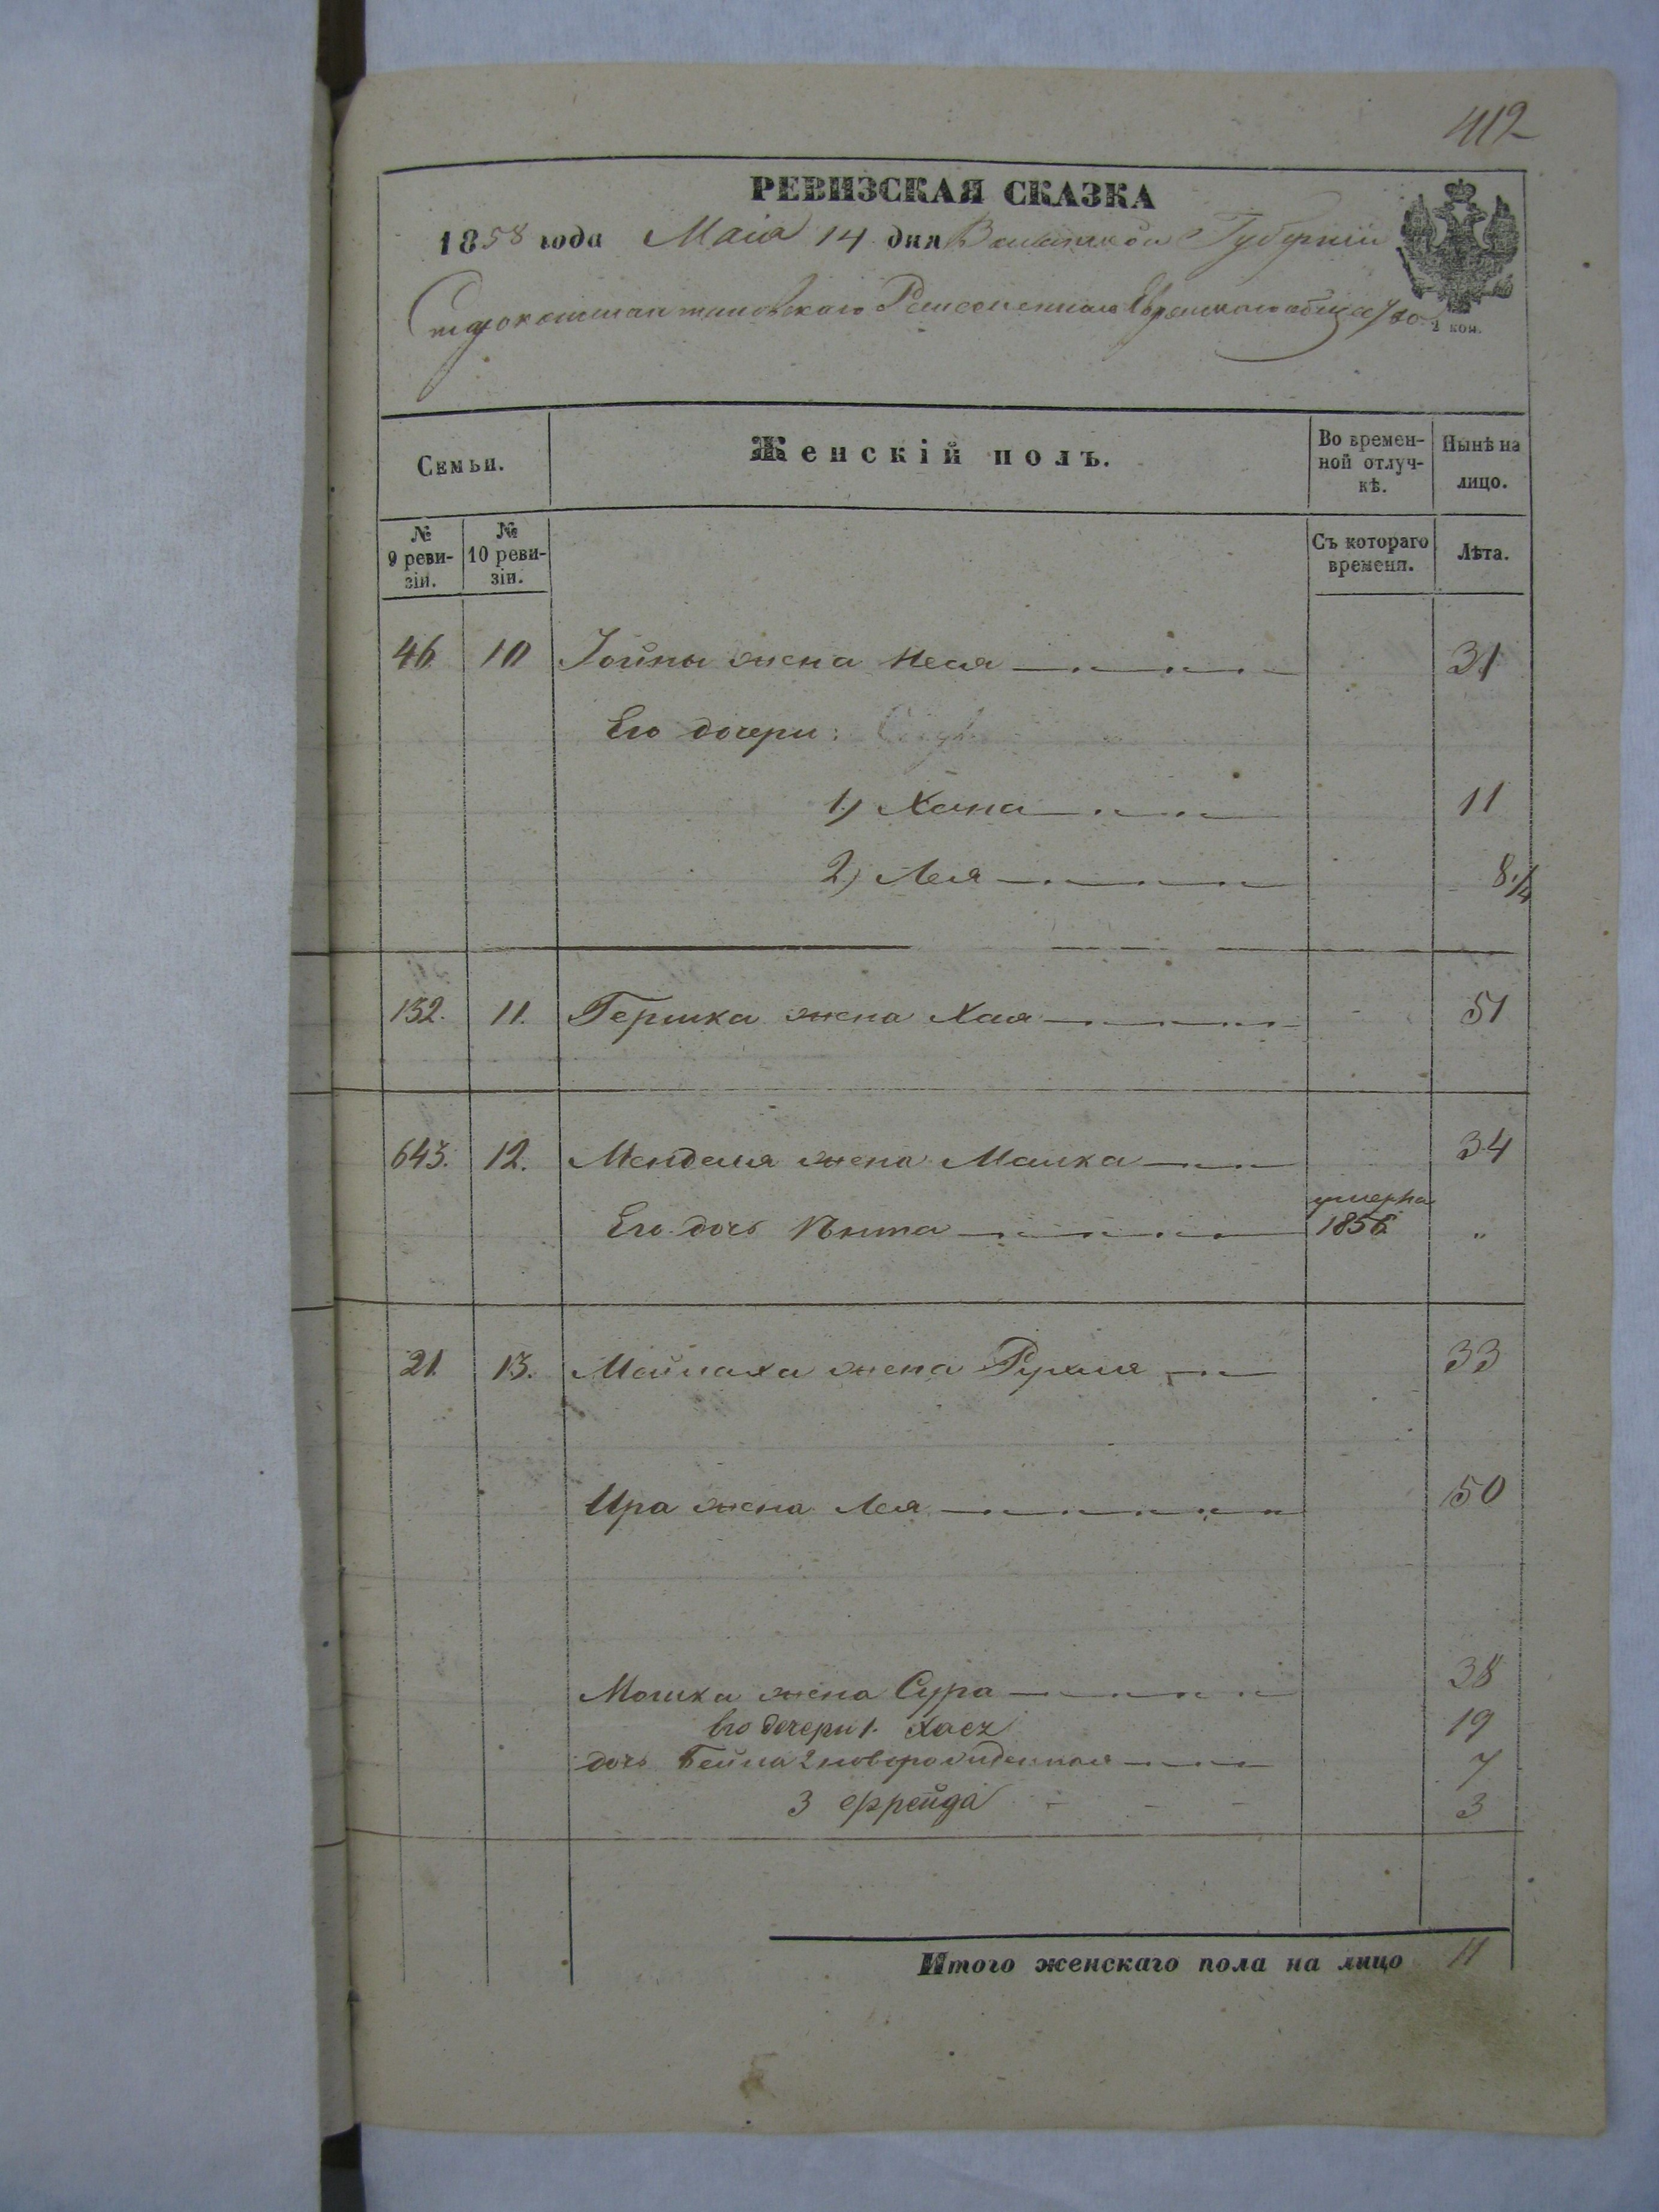 412
РЕВИЗСКАЯ СКАЗКА
1858 года Маія 14 дня Волынской Губерніи
Староконстантиновскаго Еврейскаго общества
2 коп.
Семьи.
Женскій полъ.
Во времен-
ной отлуч-
кѣ.
Нынѣ на
лицо.
№
9 реви-
зіи.
№
10 реви-
зіи.
Съ котораго
времени.
Лѣта.
46 10 Іойны жена Неся 31
Его дочери:
1) Хана 11
2) Лея 8 1/4
132. 11. Гершка жена Хая 51
643. 12. Менделя жена Малка 34
Его дочь умерла
1856. "
21. 13. Маймаха жена Рухля 33
Ира жена Лея 50
Мошка жена Сура 38
Его дочери 1. 19
дочь Бейла 2 новорожденная 7
3 Фрейда 3
Итого женскаго пола на лицо 11